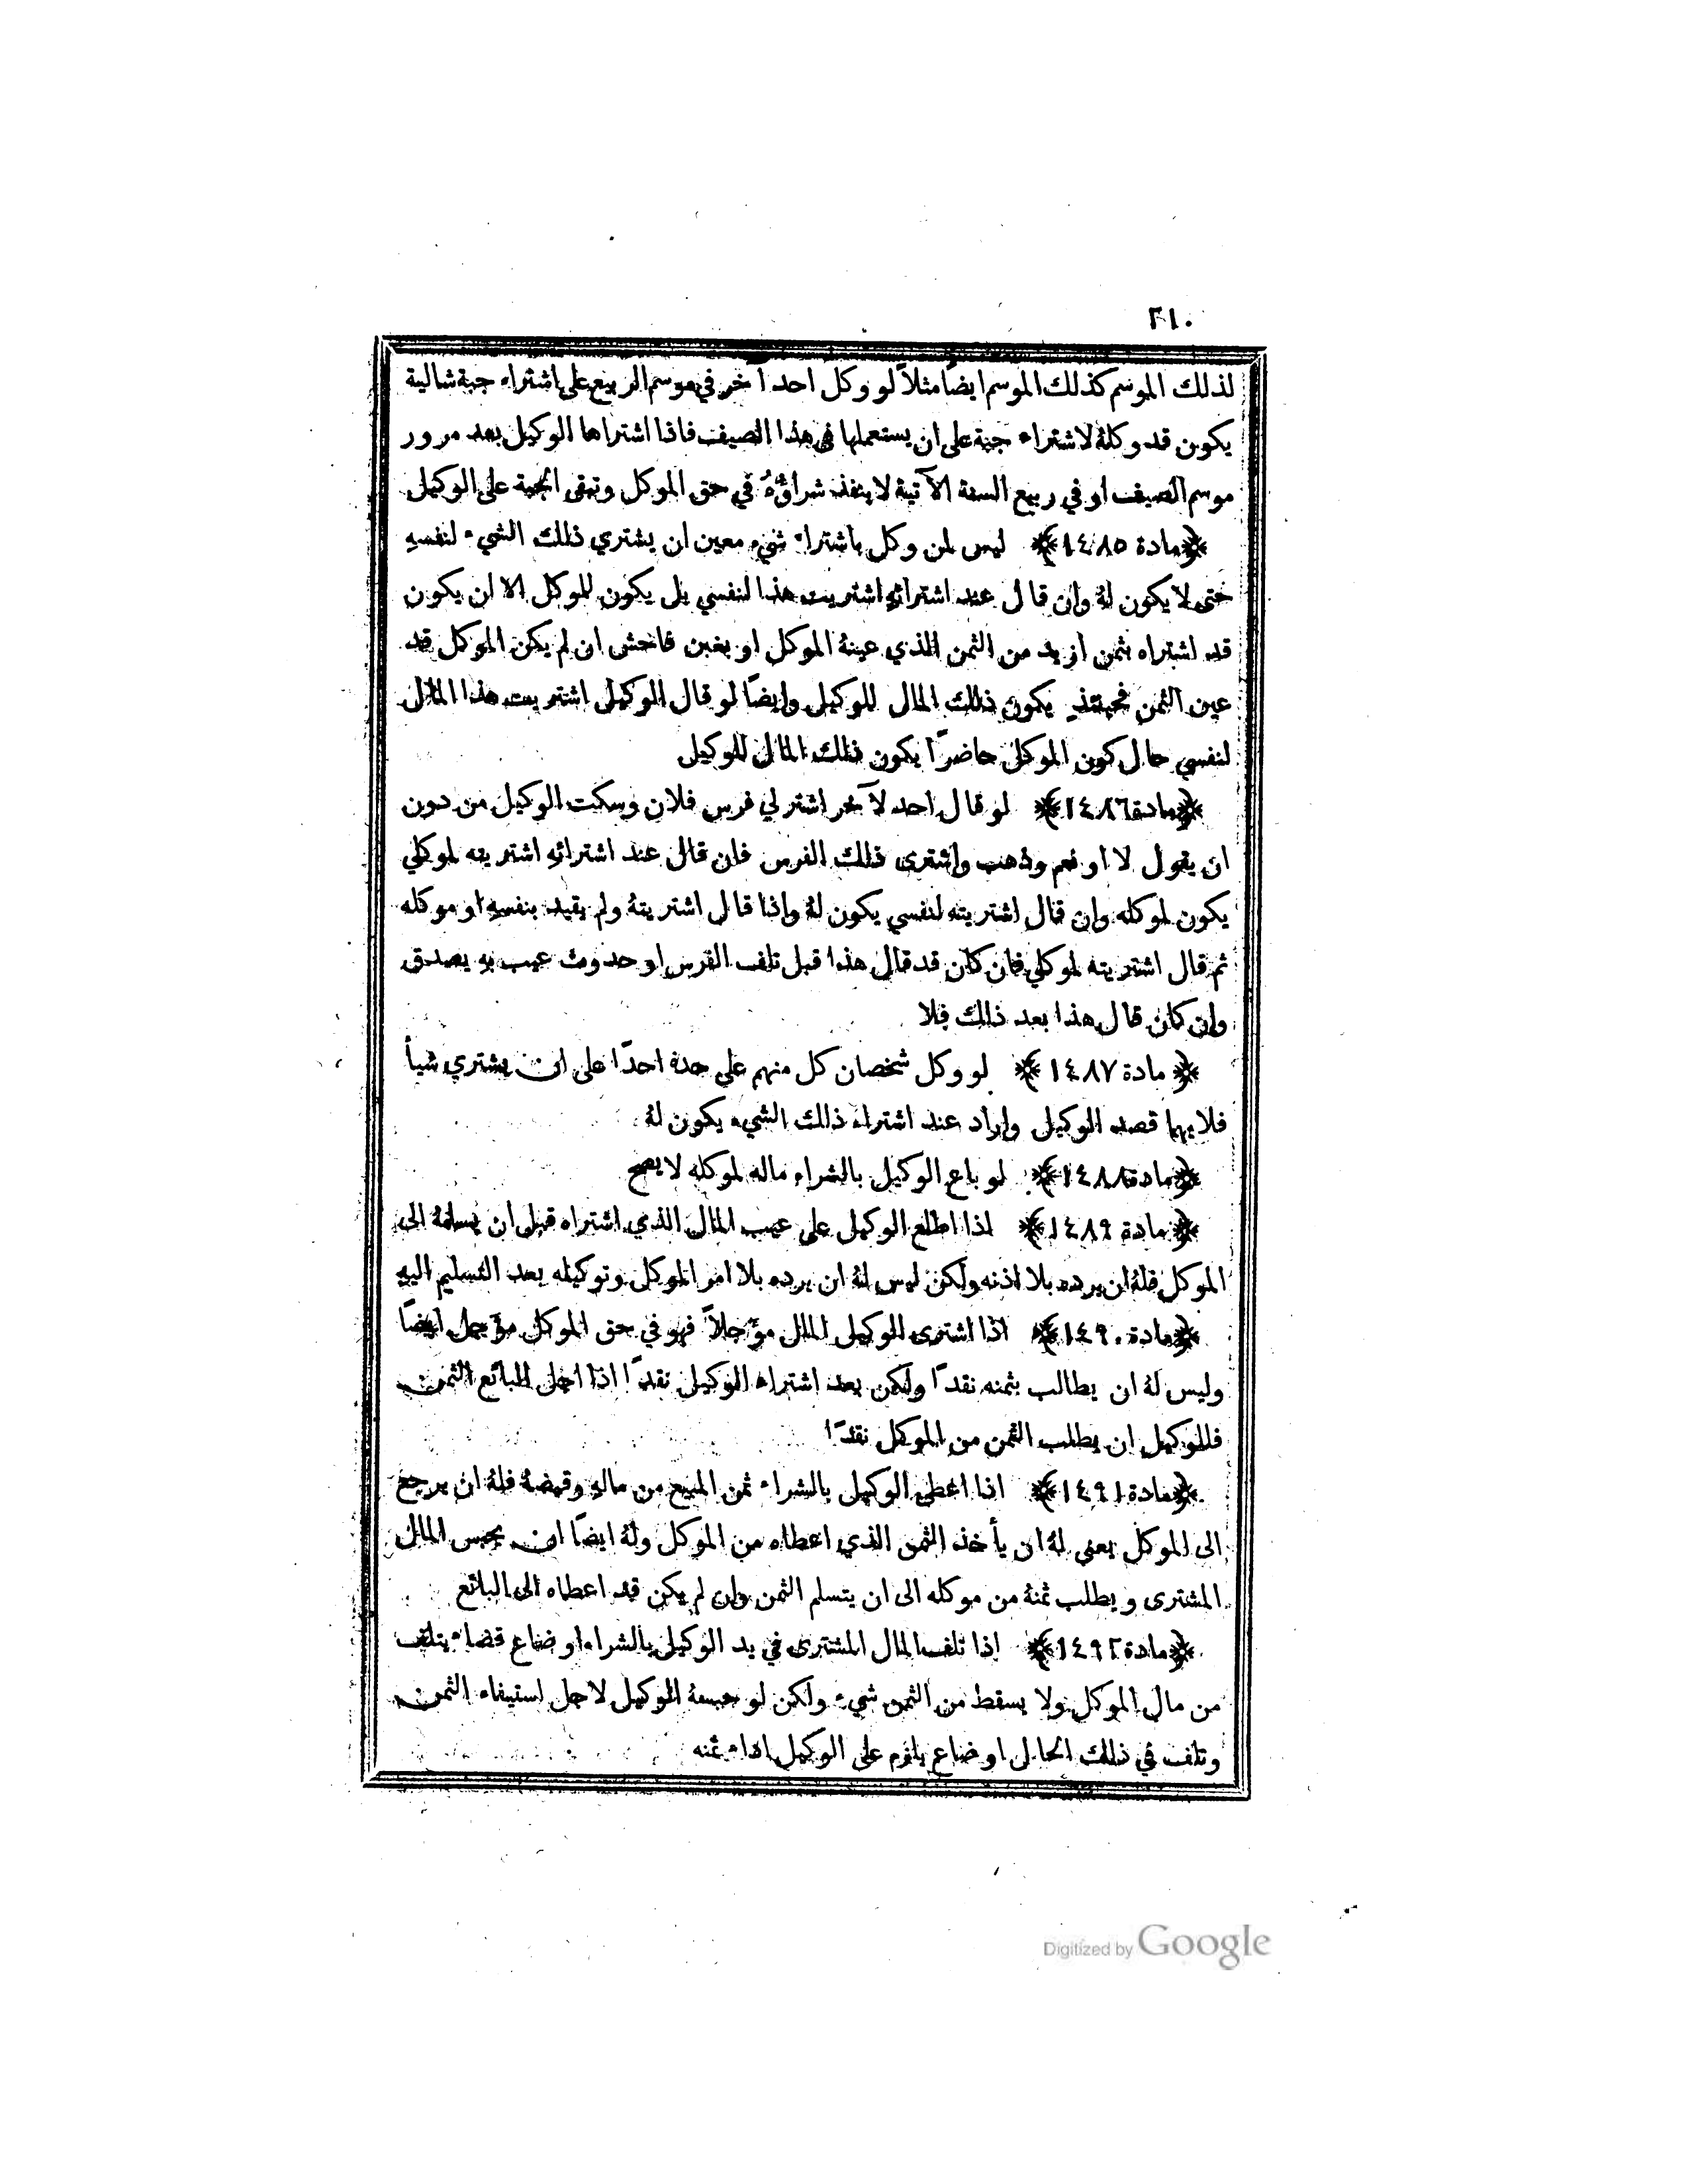 ٢١٠
لذلك الموسم كذلك الموسم ايضًا مثلاً لو وكل احد آخر في موسم الربيع على اشتراء جبة شالية
يكون قد وكلهُ لاشتراء جبة على ان يستعملها في هذا الصيف فاذا اشتراها الوكيل بعد مرور
موسم الصيف او في ربيع السنة الآتية لا ينفذ شراؤُهُ في حق الموكل وتبقى الجبة على الوكيل
﴿مادة ١٤٨٥﴾ ليس لمن وكل باشتراء شيء معين ان يشتري ذلك الشيء لنفسهِ
حتى لا يكون لهُ وان قال عند اشترائهِ اشتريت هذا لنفسي بل يكون للموكل الا ان يكون
قد اشتراه بثمن ازيد من الثمن الذي عينهُ الموكل او بغبن فاحش ان لم يكن الموكل قد
عين الثمن فحينئذٍ يكون ذلك المال للوكيل وايضًا لو قال الوكيل اشتريت هذا المال
لنفسي حال كون الموكل حاضرًا يكون ذلك المال للوكيل
﴿مادة ١٤٨٦﴾ لو قال احد لآخر اشتر لي فرس فلان وسكت الوكيل من دون
ان يقول لا او نعم وذهب واشترى ذلك الفرس فان قال عند اشترائهِ اشتريته لموكلي
يكون لموكله وان قال اشتريته لنفسي يكون لهُ واذا قال اشتريتهُ ولم يقيد بنفسهِ او موكله
ثم قال اشتريته لموكلي فان كان قد قال هذا قبل تلف الفرس او حدوث عيب به يصدق
وان كان قال هذا بعد ذلك فلا
﴿مادة ١٤٨٧﴾ لو وكل شخصان كل منهم على حدة احدًا على ان يشتري شيأ
فلايهما قصد الوكيل واراد عند اشتراء ذلك الشيء يكون لهُ
﴿مادة ١٤٨٨﴾ لو باع الوكيل بالشراء ماله لموكله لا يصح
﴿مادة ١٤٨٩﴾ اذا اطلع الوكيل على عيب المال الذي اشتراه قبل ان يسلمهُ الى
الموكل فلهُ ان يرده بلا اذنه ولكن ليس لهُ ان يرده بلا امر الموكل وتوكيله بعد التسليم اليهِ
﴿مادة ١٤٩٠﴾ اذا اشترى الوكيل المال مؤجلاً فهو في حق الموكل مؤجل ايضًا
وليس لهُ ان يطالب بثمنه نقدًا ولكن بعد اشتراء الوكيل نقدًا اذا اجل البائع الثمن
فللوكيل ان يطلب الثمن من الموكل نقدًا
﴿مادة ١٤٩١﴾ اذا اعطى الوكيل بالشراء ثمن المبيع من مالهِ وقبضهُ فلهُ ان يرجع
الى الموكل يعني لهُ ان يأخذ الثمن الذي اعطاه من الموكل ولهُ ايضًا ان يحبس المال
المشترى ويطلب ثمنهُ من موكله الى ان يتسلم الثمن وان لم يكن قد اعطاه الى البائع
﴿مادة ١٤٩٢﴾ اذا تلف المال المشترى في يد الوكيل بالشراء او ضاع قضاء يتلف
من مال الموكل ولا يسقط من الثمن شيء ولكن لو حبسهُ الوكيل لاجل استيفاء الثمن
وتلف في ذلك الحال او ضاع يلزم على الوكيل اداء ثمنه
Digitized by Google